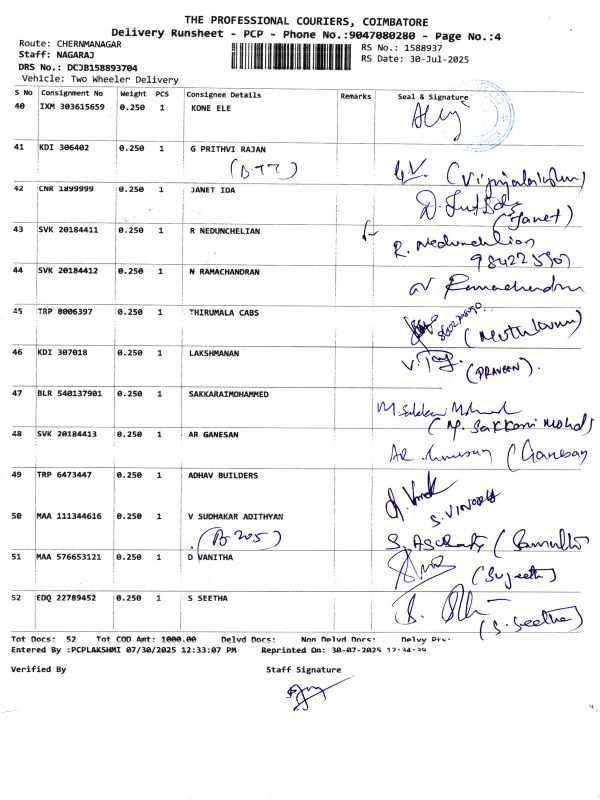 THE PROFESSIONAL COURIERS, COIMBATORE
Delivery Runsheet - PCP - Phone No.:9047080280 - Page No.:4
Route: CHERNMANAGAR RS No.: 1588937
Staff: NAGARAJ RS Date: 30-Jul-2025
DRS No.: DCJB158893704
Vehicle: Two Wheeler Delivery
S No Consignment No Weight PCS Consignee Details Remarks Seal & Signature
40 IXM 303615659 0.250 1 KONE ELE
41 KDI 306402 0.250 1 G PRITHVI RAJAN
(B-77)
42 CNR 1899999 0.250 1 JANET IDA
(Janet)
43 SVK 20184411 0.250 1 R NEDUNCHELIAN R. Nedunchelian
44 SVK 20184412 0.250 1 N RAMACHANDRAN N Ramachandran
45 TRP 8006397 0.250 1 THIRUMALA CABS
46 KDI 307018 0.250 1 LAKSHMANAN (PRAVEEN).
47 BLR 540137901 0.250 1 SAKKARAIMOHAMMED
48 SVK 20184413 0.250 1 AR GANESAN (Ganesan
49 TRP 6473447 0.250 1 ADHAV BUILDERS
50 MAA 111344616 0.250 1 V SUDHAKAR ADITHYAN
(B-205)
51 MAA 576653121 0.250 1 D VANITHA (Sujeeth)
52 EDQ 22789452 0.250 1 S SEETHA (S. Seetha)
Tot Docs: 52 Tot COD Amt: 1000.00 Delvd Docs: Non Delvd Docs: Delvy Pts:
Entered By :PCPLAKSHMI 07/30/2025 12:33:07 PM Reprinted On: 30-07-2025
Verified By Staff Signature